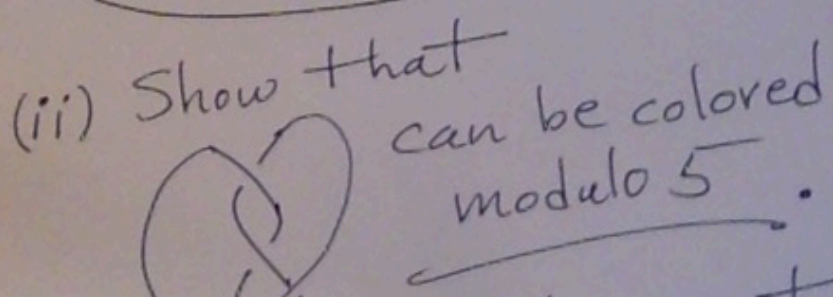 (ii) Show that
can be colored
modulo 5.